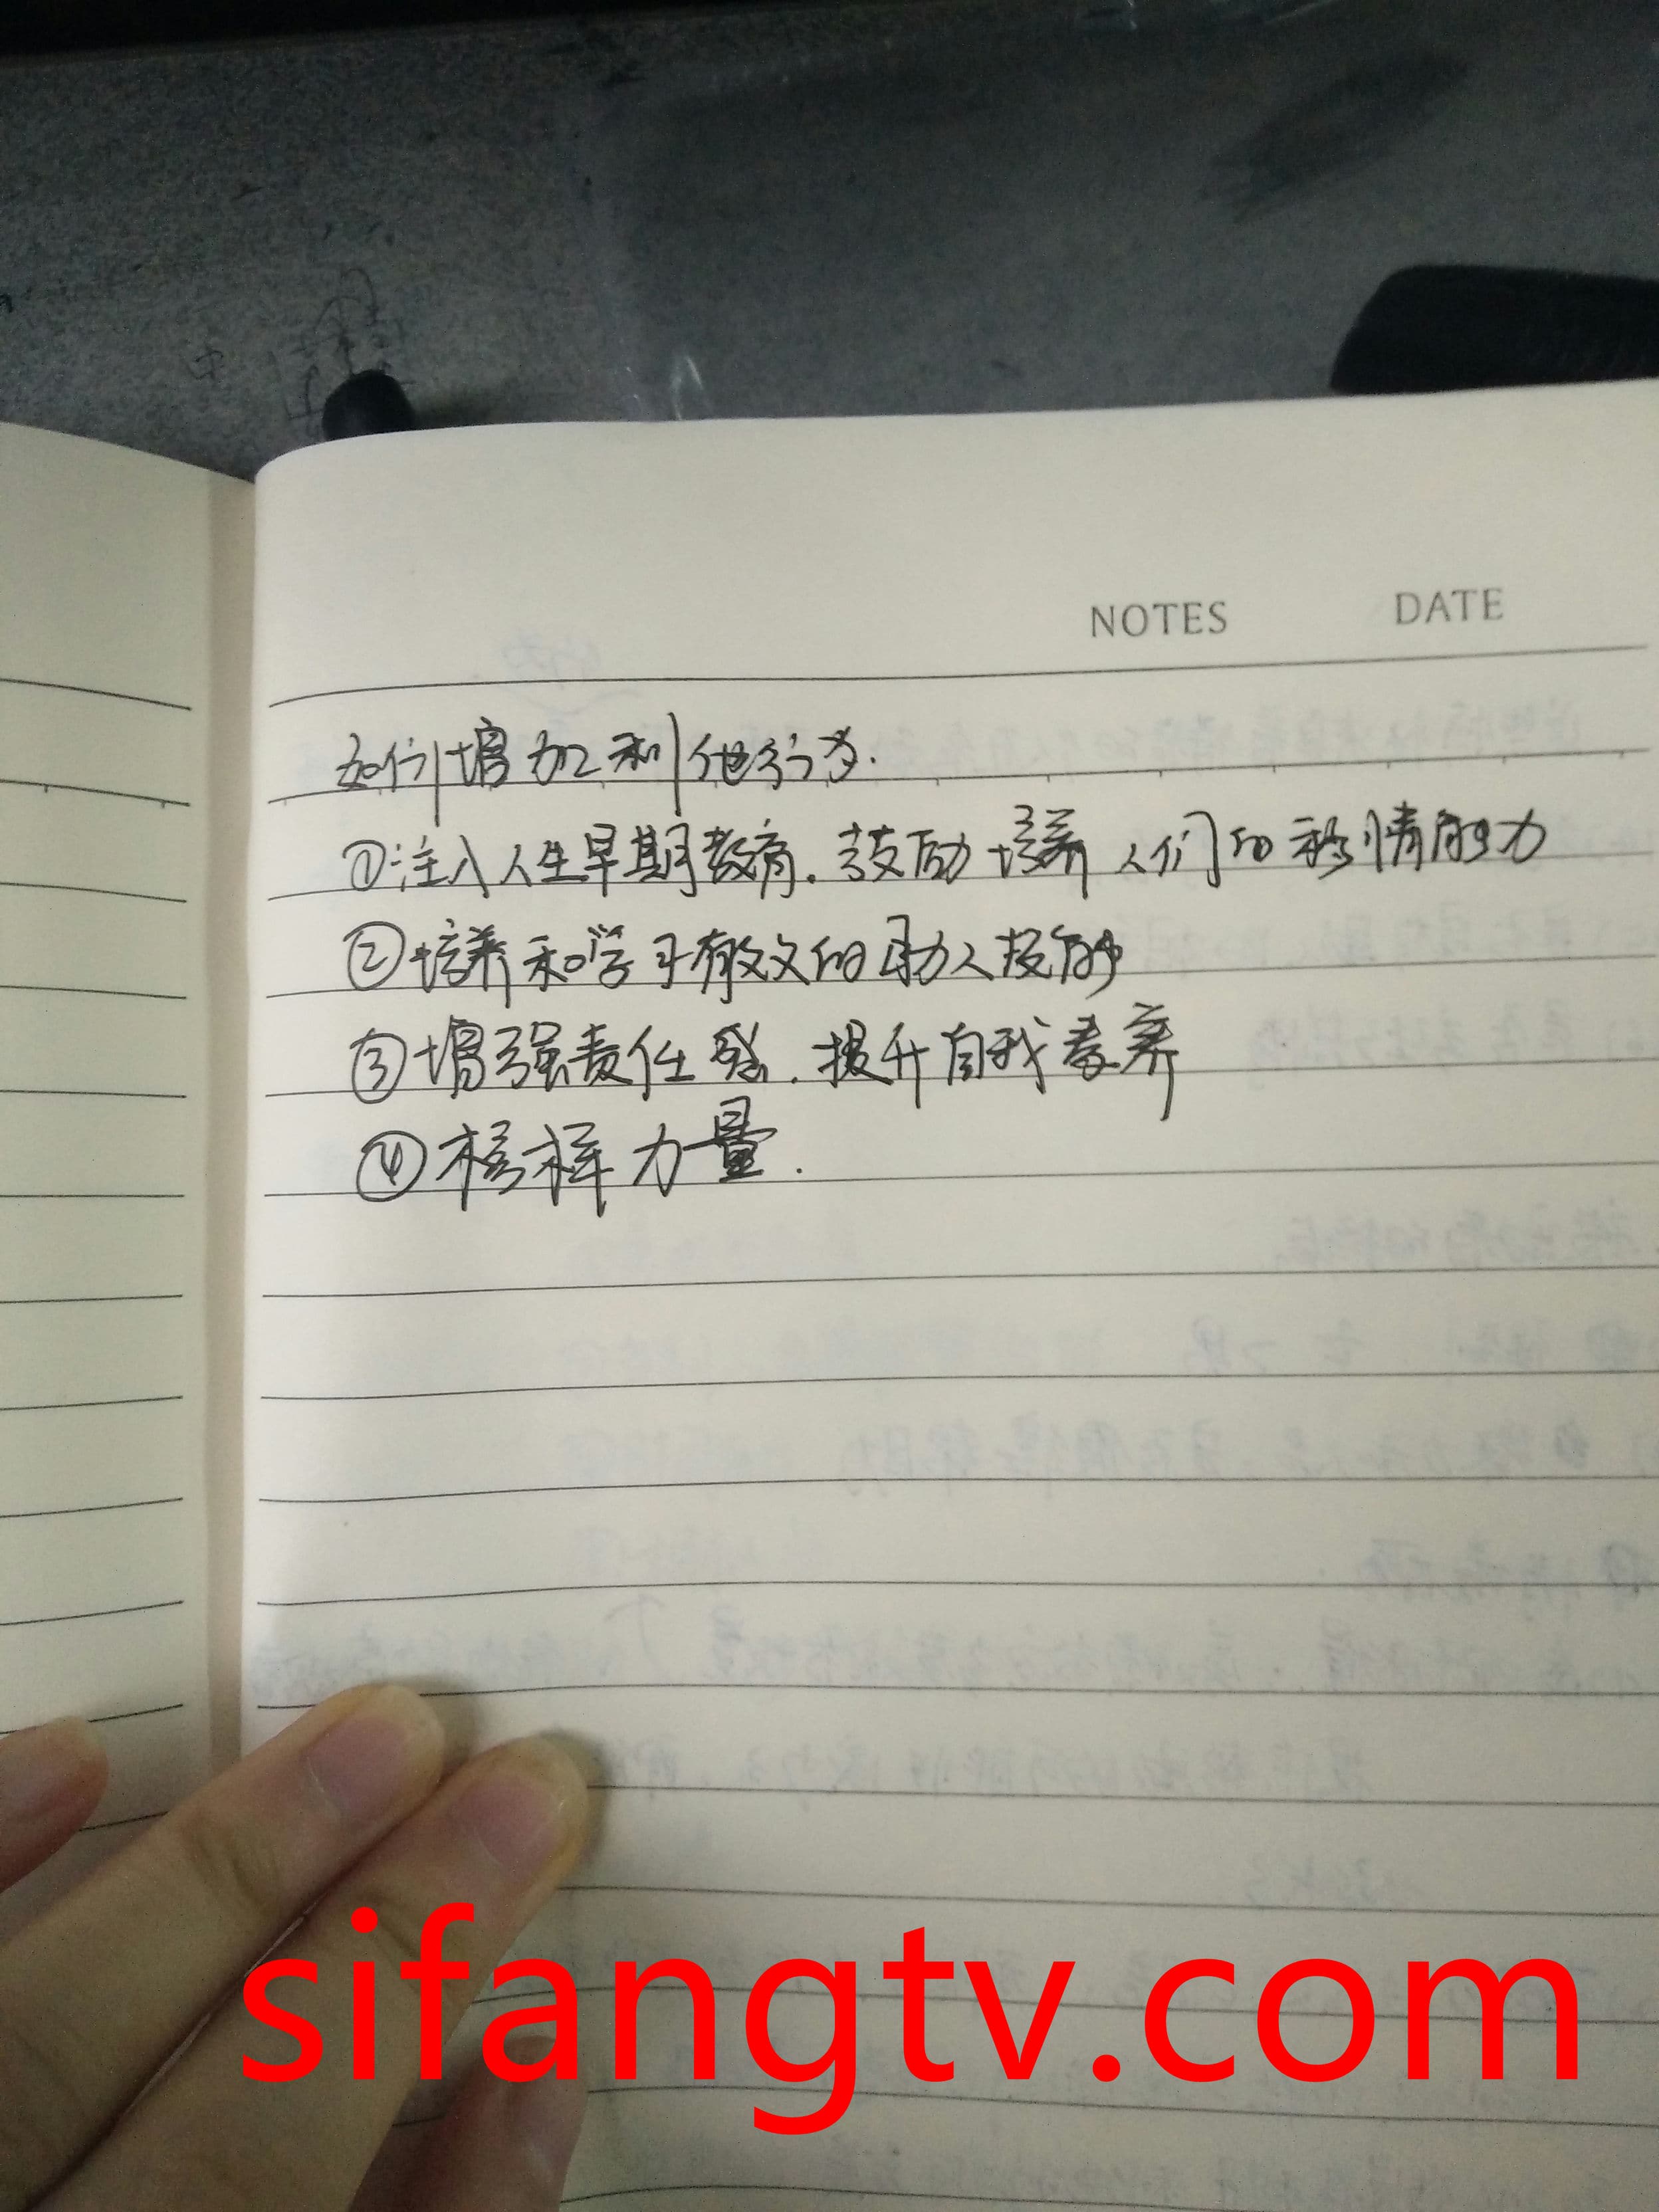 NOTES DATE
如何增加利他行为.
①注入人生早期教育.鼓励培养人们的移情能力
②培养和学习有效的助人技能
③增强责任感.提升自我素养
④榜样力量.
sifangtv.com